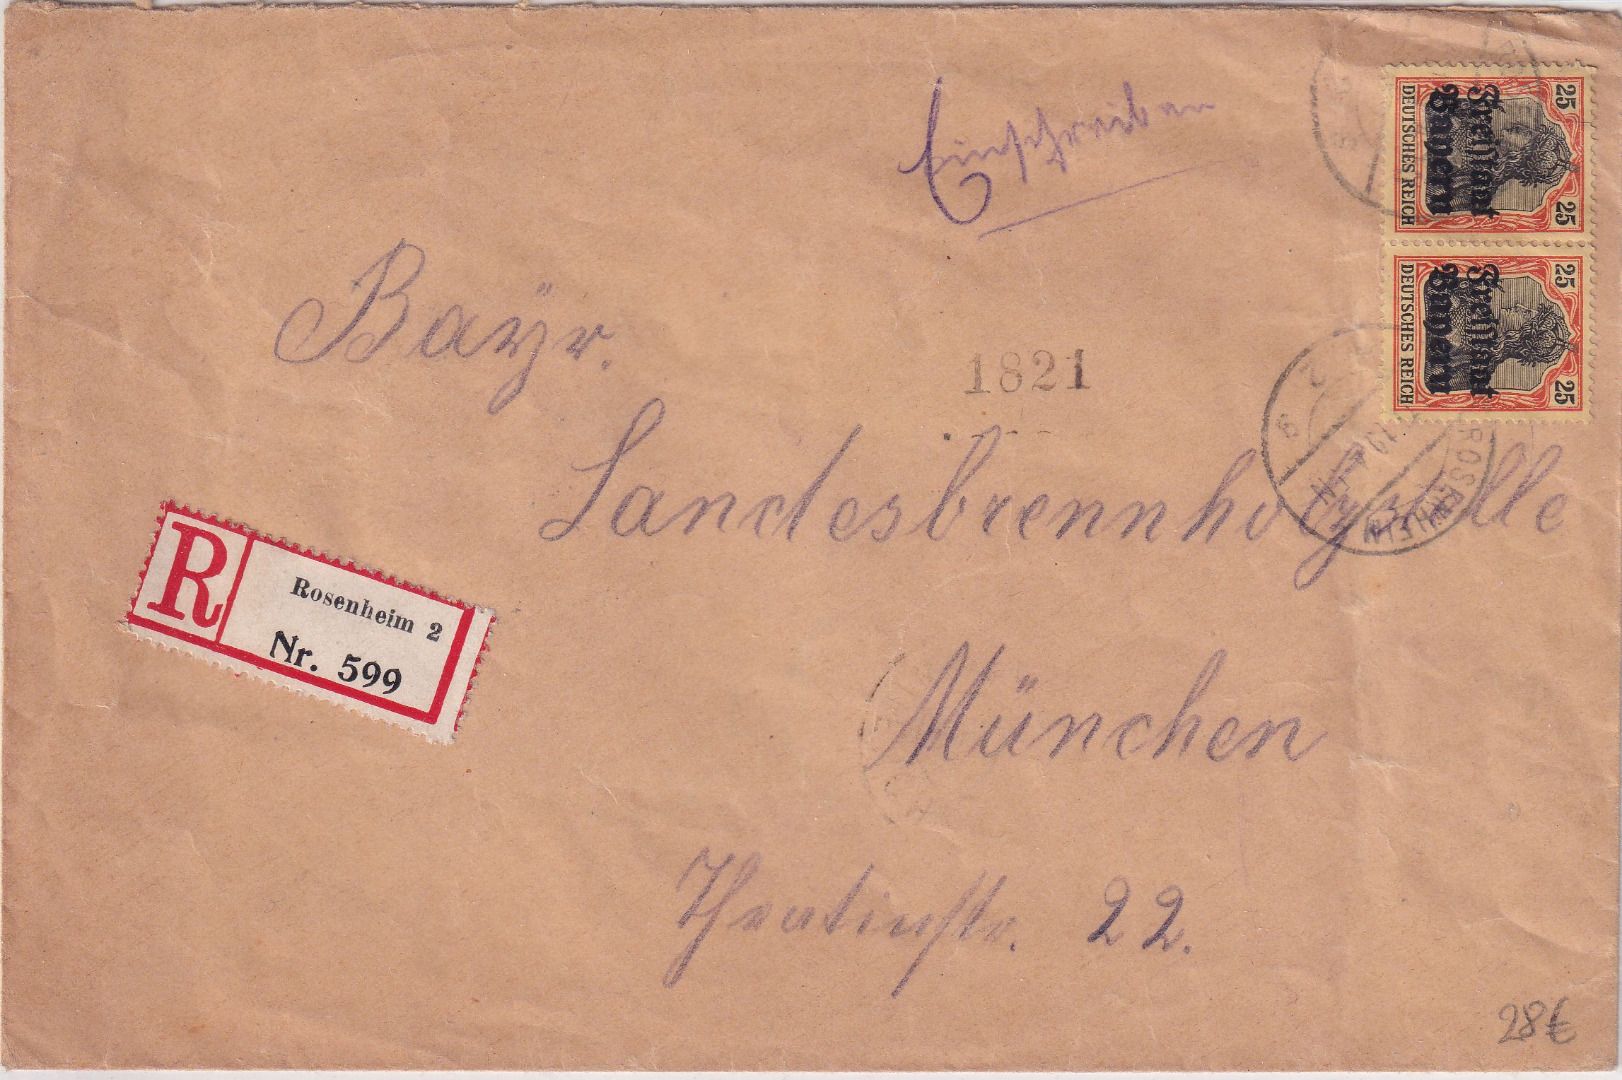 Einschreiben
25 25
DEUTSCHES REICH
Freistaat
Bayern
25 25
DEUTSCHES REICH
Freistaat
Bayern
Bayr.
1821
ROSENHEIM 2
Landesbrennholzstelle
R
Rosenheim 2
Nr. 599
München
Theatinstr. 22.
28€